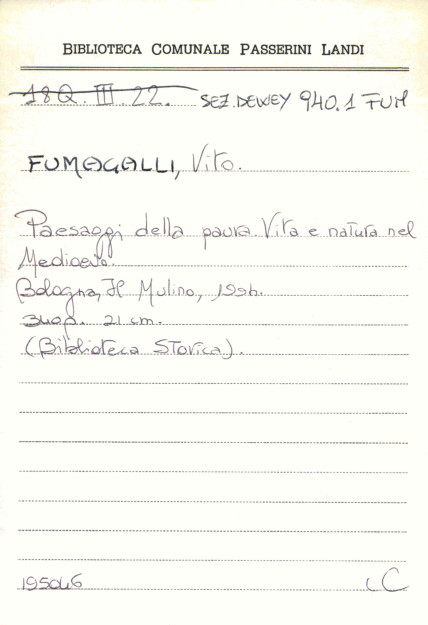 BIBLIOTECA COMUNALE PASSERINI LANDI
18Q. III. 22. SEZ. DEWEY 940.1 FUM
FUMAGALLI, Vito.
Paesaggi della paura. Vita e natura nel
Medioevo.
Bologna, Il Mulino, 1994.
340p. 21 cm.
(Biblioteca Storica).
195046 C